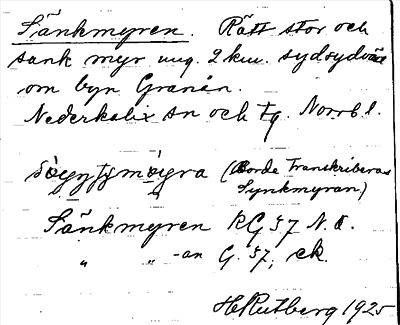 Sänkmyren. Rätt stor och
sank myr ung. 2 km. sydsydväst
om byn Granån.
Nederkalix sn och tg. Norrb. l.
(Borde Transkriberas
Synkmyran)
Sänkmyren RG 57 N.O.
" " -an G. 57, ek.
H Rutberg 1925